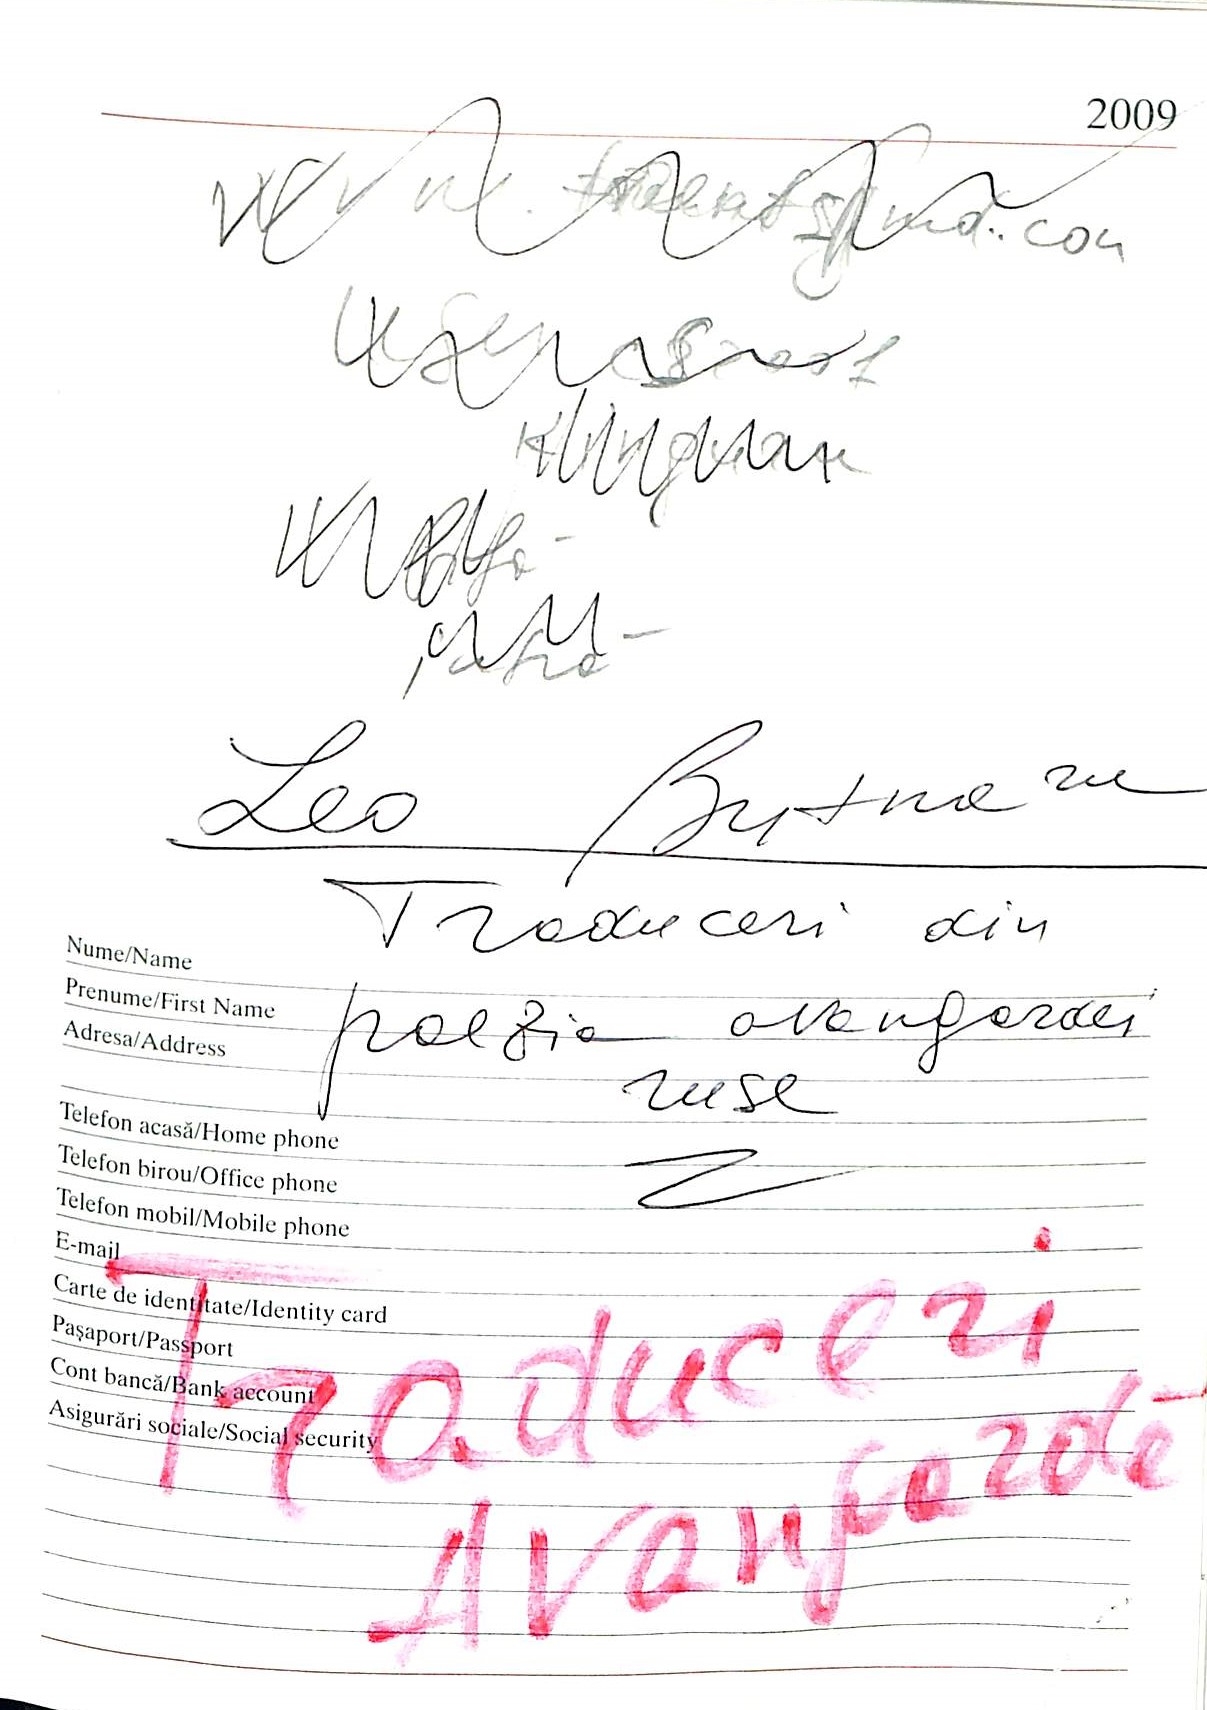 2009
Leo Butnaru
Traduceri din
Nume/Name
Prenume/First Name
poezia avangardei
Adresa/Address
ruse
Telefon acasă/Home phone
Telefon birou/Office phone
Telefon mobil/Mobile phone
E-mail
Traduceri
Carte de identitate/Identity card
Pașaport/Passport
Cont bancă/Bank account
Asigurări sociale/Social security
Avangardă